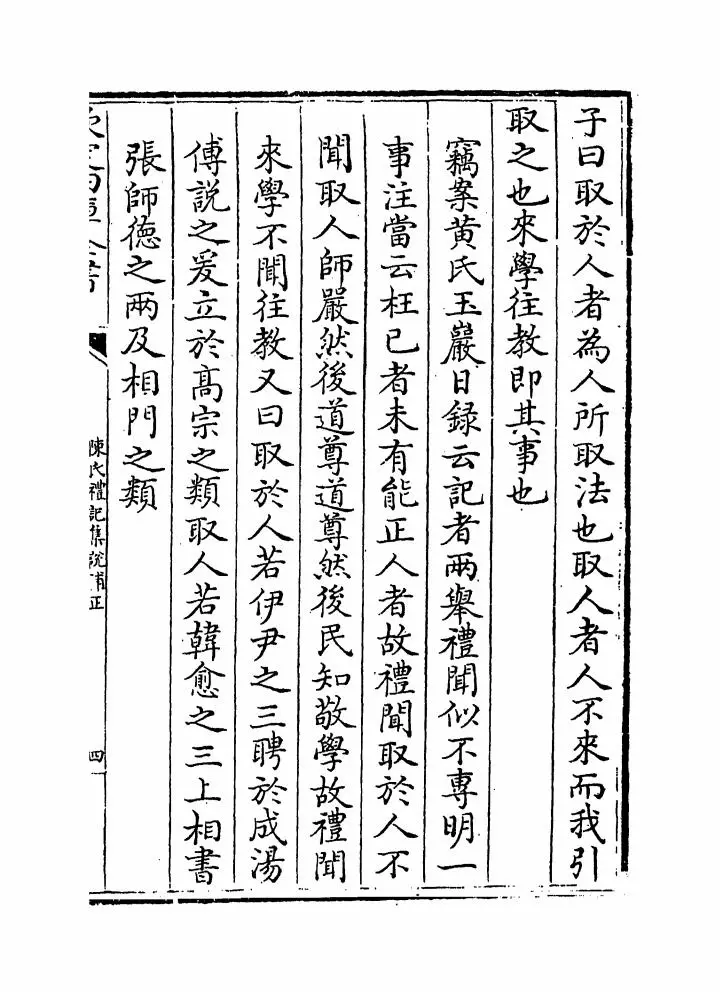 子曰取於人者為人所取法也取人者人不來而我引
取之也來學往教即其事也
竊案黄氏玉巖日録云記者兩舉禮聞似不專明一
事注當云枉已者未有能正人者故禮聞取於人不
聞取人師嚴然後道尊道尊然後民知敬學故禮聞
來學不聞往教又曰取於人若伊尹之三聘於成湯
傅說之爰立於髙宗之類取人若韓愈之三上相書
張師德之兩及相門之類
陳氏禮記集說補正
四